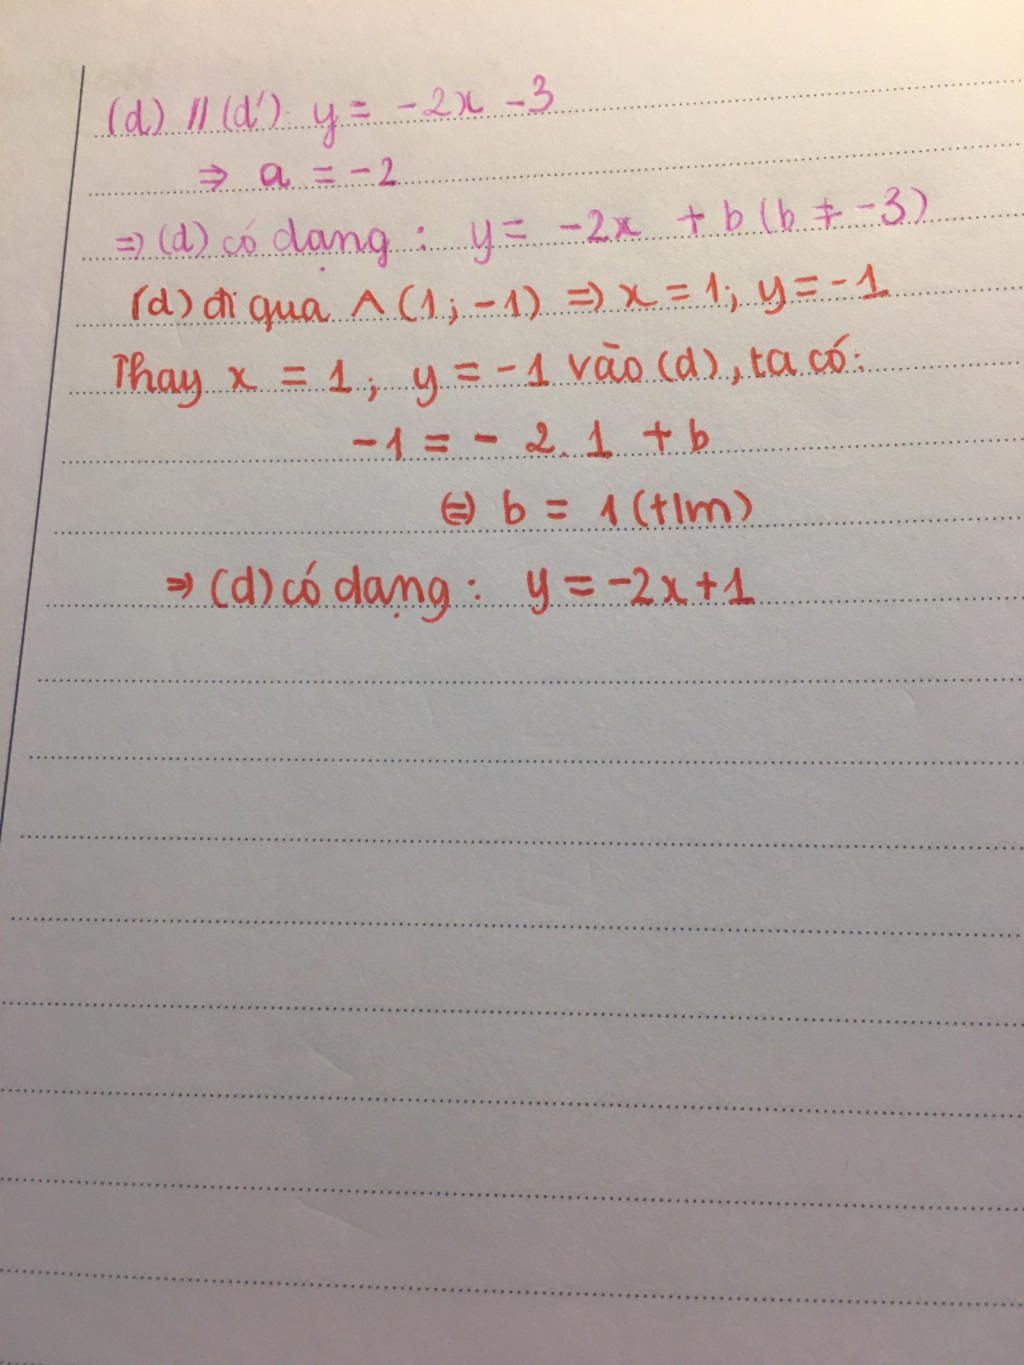 (d) // (d'): y = -2x - 3
⇒ a = -2
⇒ (d) có dạng : y = -2x + b (b ≠ -3)
(d) đi qua A (1; -1) ⇒ x = 1; y = -1
Thay x = 1; y = -1 vào (d), ta có:
-1 = - 2.1 + b
⇔ b = 1 (t/m)
⇒ (d) có dạng : y = -2x + 1